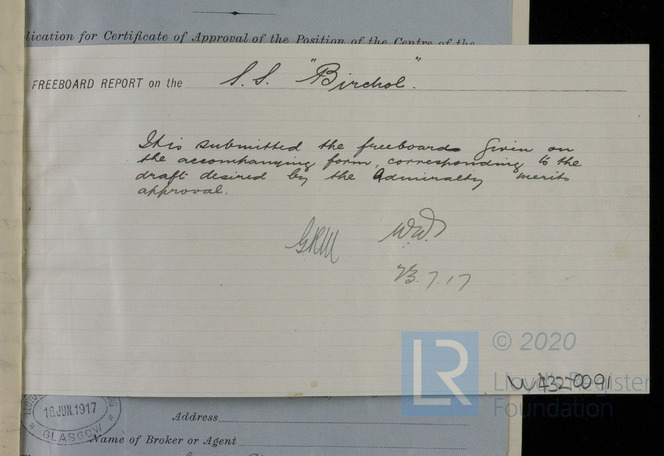 lication for Certificate of Approval of the Position of the Centre of the
FREEBOARD REPORT on the S.S. "Birchol".
It is submitted the freeboards given on
the accompanying form, corresponding to the
draft desired by the Admiralty merits
approval.
G.R.M W.W.
23.7.17
LR © 2020
Lloyd's Register
Foundation
16 JUN 1917
GLASGOW
Address
Name of Broker or Agent